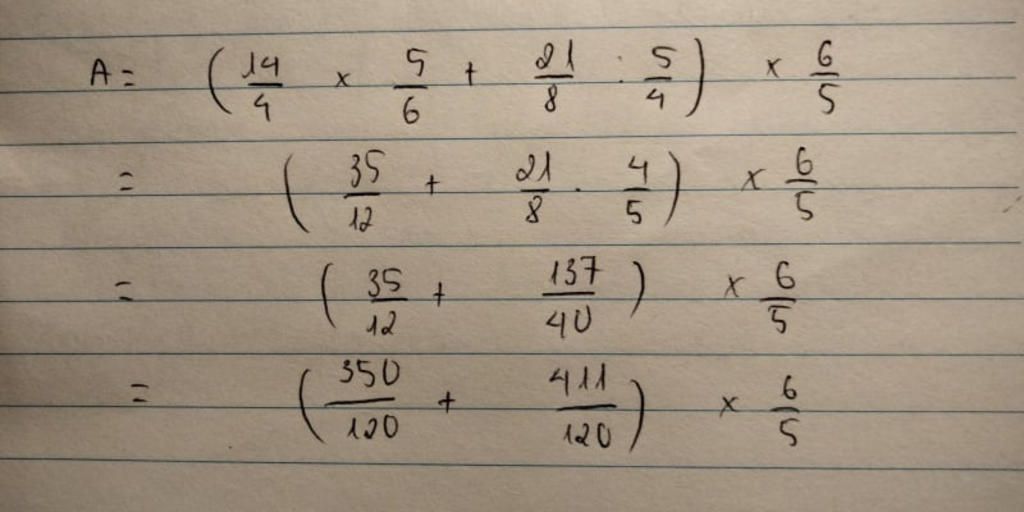 A = ( 14/4 x 5/6 + 21/8 : 5/4 ) x 6/5
= ( 35/12 + 21/8 . 4/5 ) x 6/5
= ( 35/12 + 137/40 ) x 6/5
= ( 350/120 + 411/120 ) x 6/5